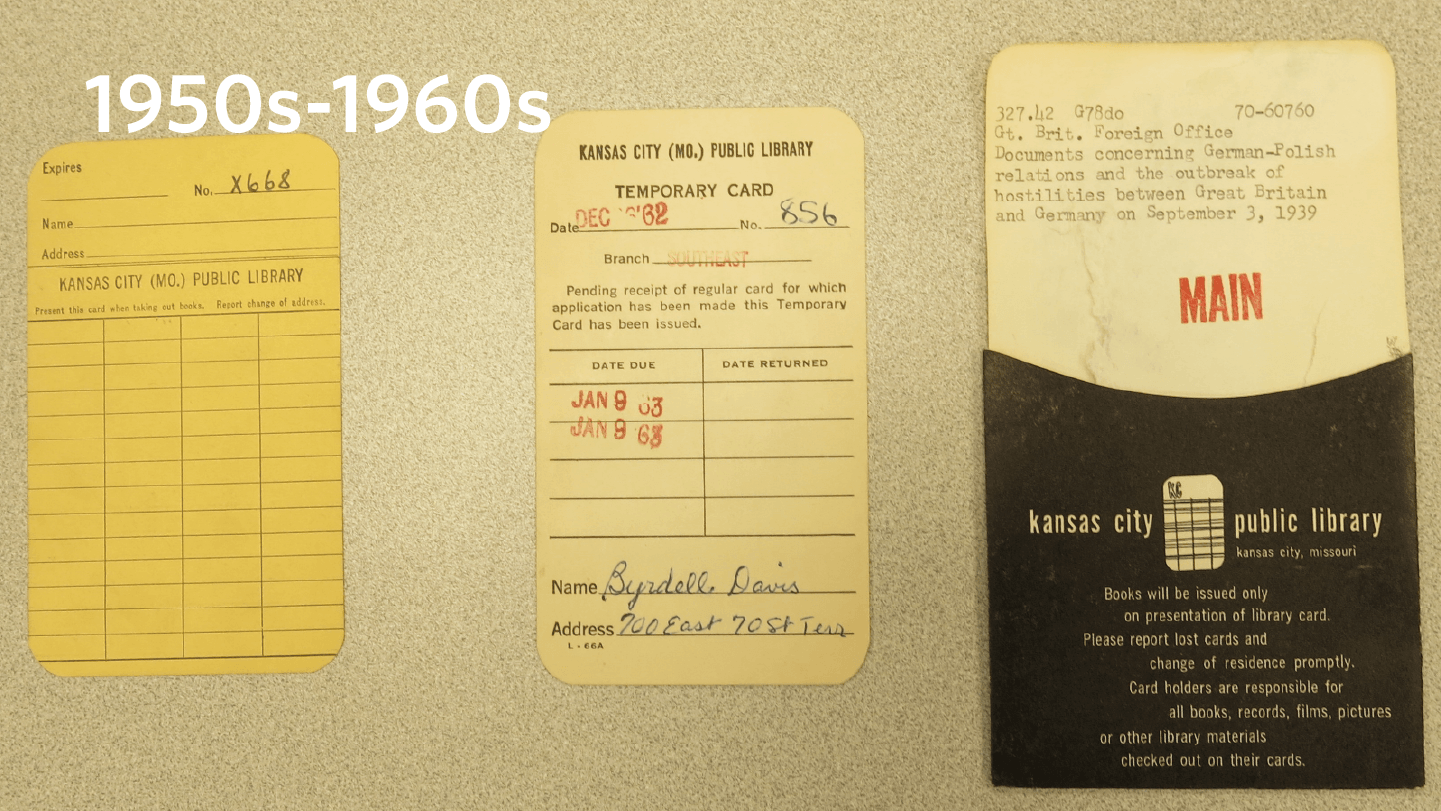 1950s-1960s
Expires
No. X668
Name
Address
KANSAS CITY (MO.) PUBLIC LIBRARY
Present this card when taking out books. Report change of address.
KANSAS CITY (MO.) PUBLIC LIBRARY
TEMPORARY CARD
Date DEC '62 No. 856
Branch SOUTHEAST
Pending receipt of regular card for which
application has been made this Temporary
Card has been issued.
DATE DUE DATE RETURNED
JAN 9 63
JAN 9 63
Name Byrdell Davis
Address 700 East 70 St Terr
L - 66A
327.42 G78do 70-60760
Gt. Brit. Foreign Office
Documents concerning German-Polish
relations and the outbreak of
hostilities between Great Britain
and Germany on September 3, 1939
MAIN
KC
kansas city public library
kansas city, missouri
Books will be issued only
on presentation of library card.
Please report lost cards and
change of residence promptly.
Card holders are responsible for
all books, records, films, pictures
or other library materials
checked out on their cards.